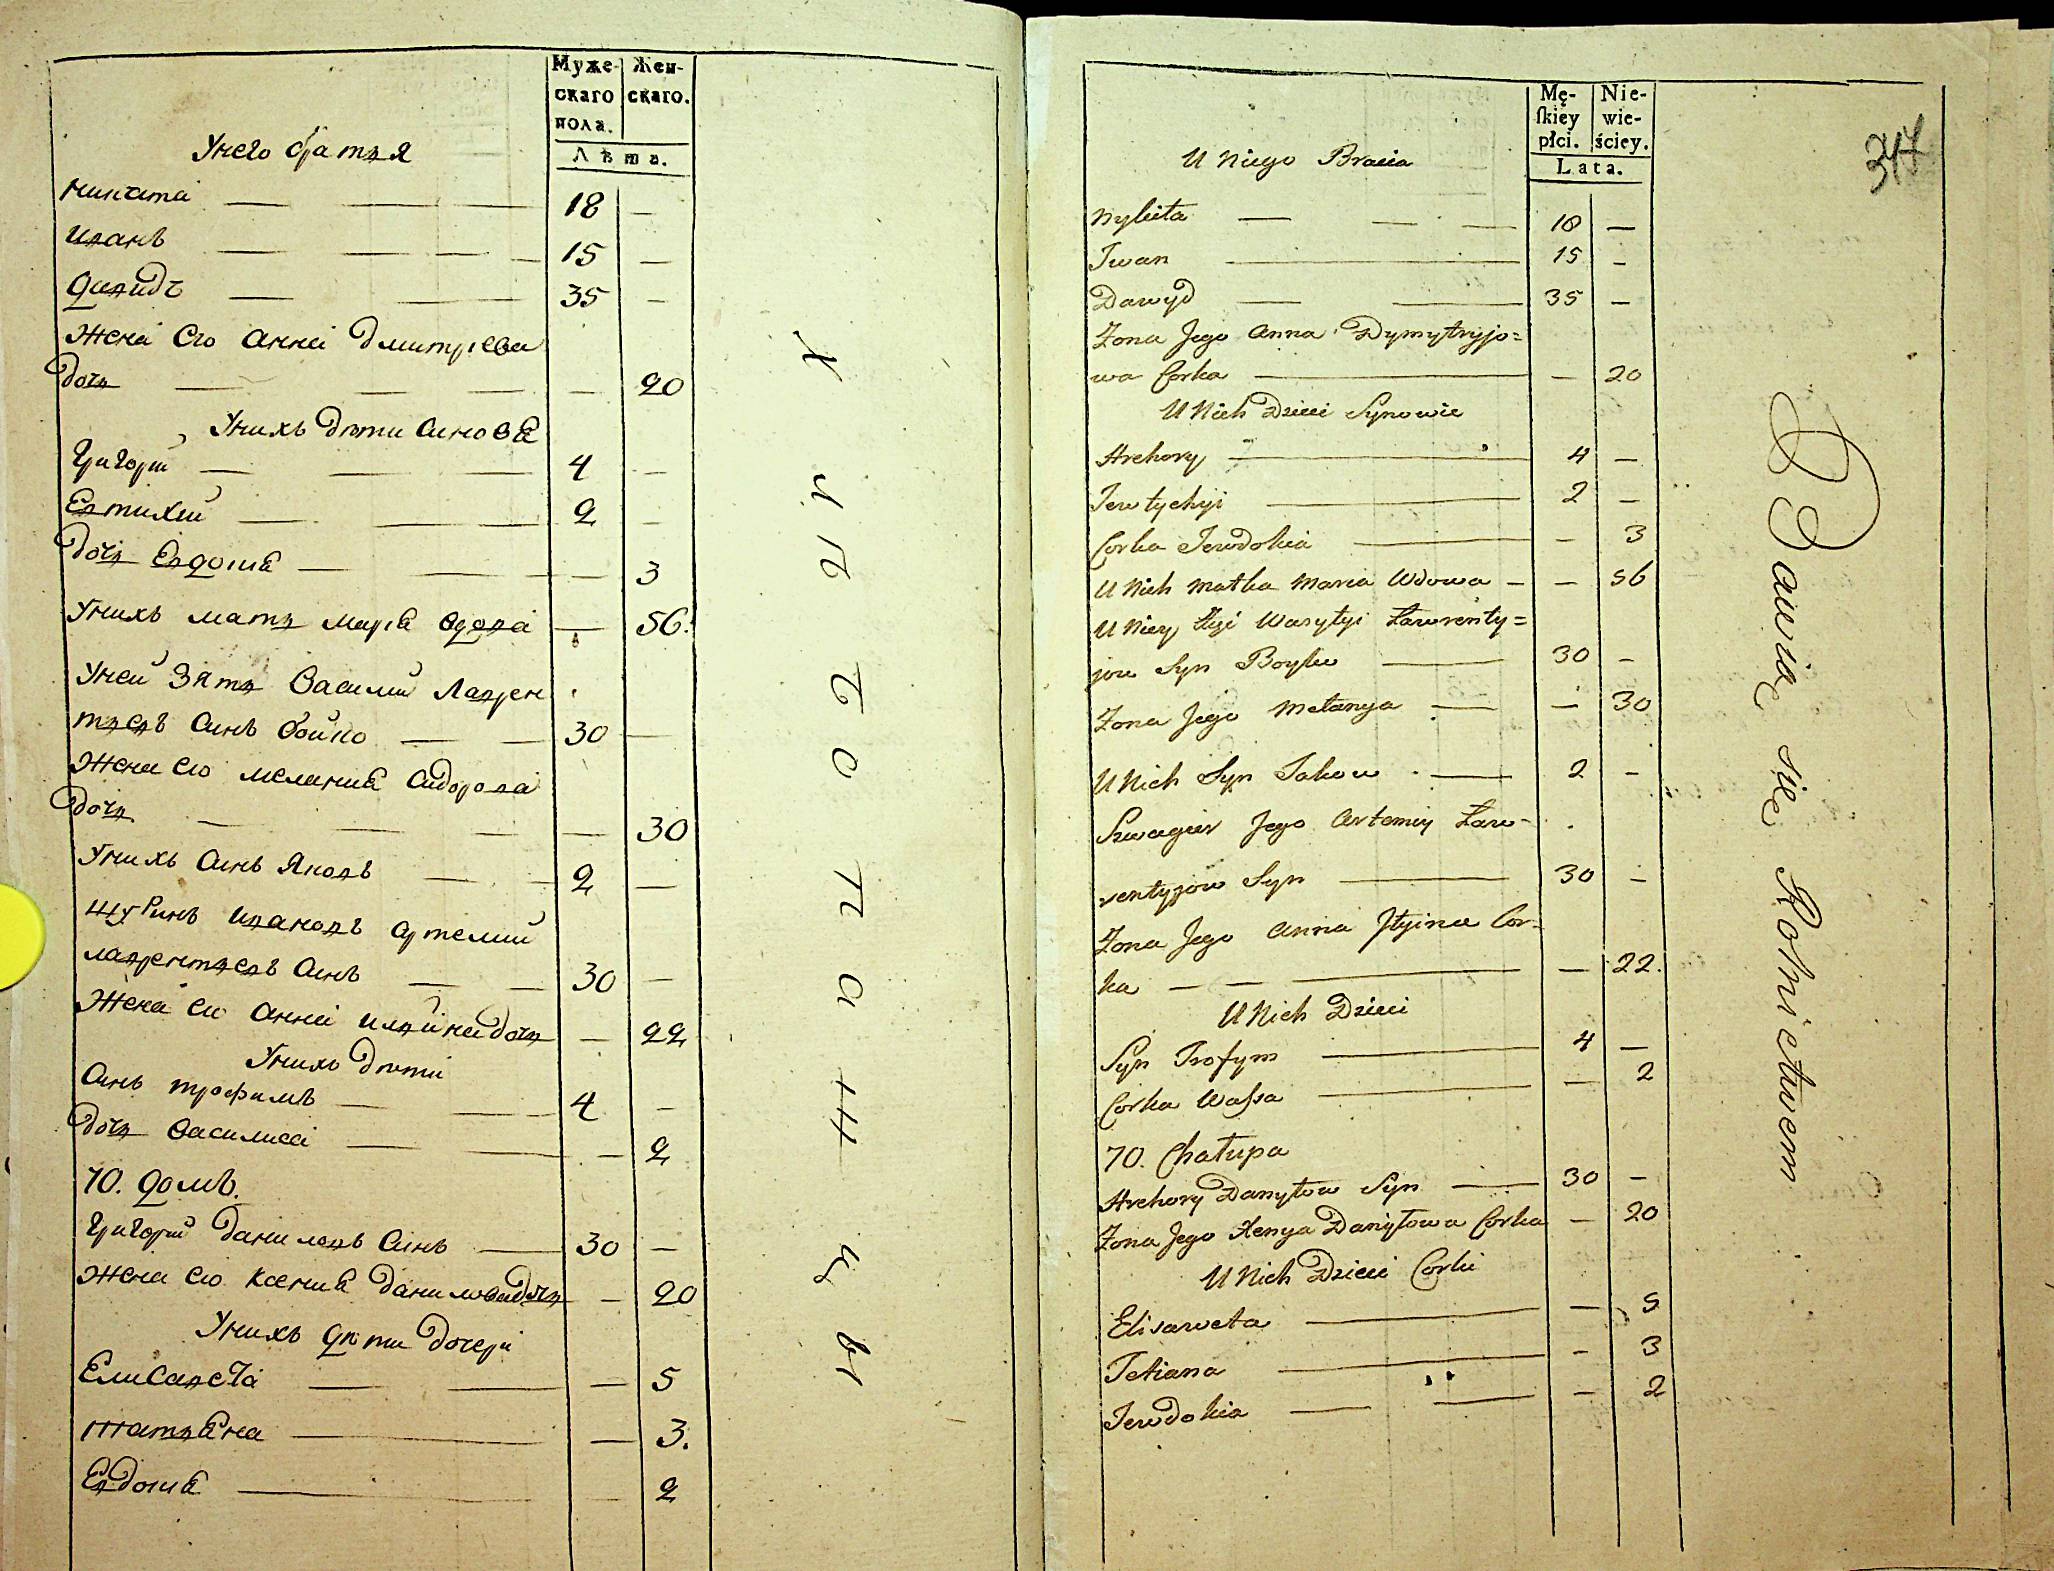 Муже- Жен-
скаго скаго.
пола.
Лѣта.
Унего братья
Никита — — — 18 —
Иванъ — — — 15 —
Давидъ — — 35 —
Жена его Анна Дмитриева
дочь — — — — 20
Унихъ дѣти синовя
Григорій — — — 4 —
Евтихій — — — 2 —
дочь Евдокия — — — — 3
Унихъ мать Мария вдова — 56.
Уней зять Василий Лаврен
тьевъ синъ Бойко — — 30 —
Жена его Мелания Сидорова
дочь — — — — — 30
Унихъ синъ Яковъ — — 2 —
Шуринъ Ивановъ Артемий
Лаврентьевъ синъ — — 30 —
Жена его Анна Ильина дочь — 22
Унихъ дѣти
Синъ Трофимъ — — 4 —
дочь Василиса — — — 2
70. домъ.
Григорий Даниловъ синъ — 30 —
Жена его Ксения Данилова дочь — 20
Унихъ дѣти дочери
Елисавета — — — 5
Татьяна — — 3.
Евдокия — — 2
Хлѣбопашцы
314
Mę- Nie-
skiey wie-
płci. ściey.
Lata.
U Niego Bracia
Nykita — — — 18 —
Iwan — 15 —
Dawyd — — 35 —
Żona Jego Anna Dymytryjo=
wa Corka — — 20
U Nich Dzieci Synowie
Hrehory — 4 —
Jewtychyi — 2 —
Corka Jewdokia — — 3
U Nich Matka Maria Wdowa — — 56
U Niey Zięć Wasylyi Ławrenty=
jow Syn Boyko — 30 —
Żona Jego Melanya — — 30
U Nich Syn Jakow — 2 —
Szwagier Jego Artemiy Ław-
rentyjow Syn — 30 —
Żona Jego Anna Jlyina Cor=
ka — — — — 22.
U Nich Dzieci
Syn Trofym — 4 —
Corka Wassa — — 2
70. Chałupa
Hrehory Danyłow Syn — 30 —
Żona Jego Xenya Danyłowa Corka — 20
U Nich Dzieci Corki
Elisaweta — — 5
Tetiana — — 3
Jewdokia — — — 2
Bawią się Rolnictwem